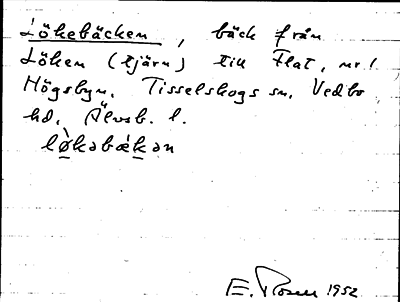 Lökebäcken, bäck från
Löken (tjärn) till Flat, nr 1
Högsbyn. Tisselskogs sn. Vedbo
hd. Älvsb. l.
lø̀kəbækən
E. Rosell 1952